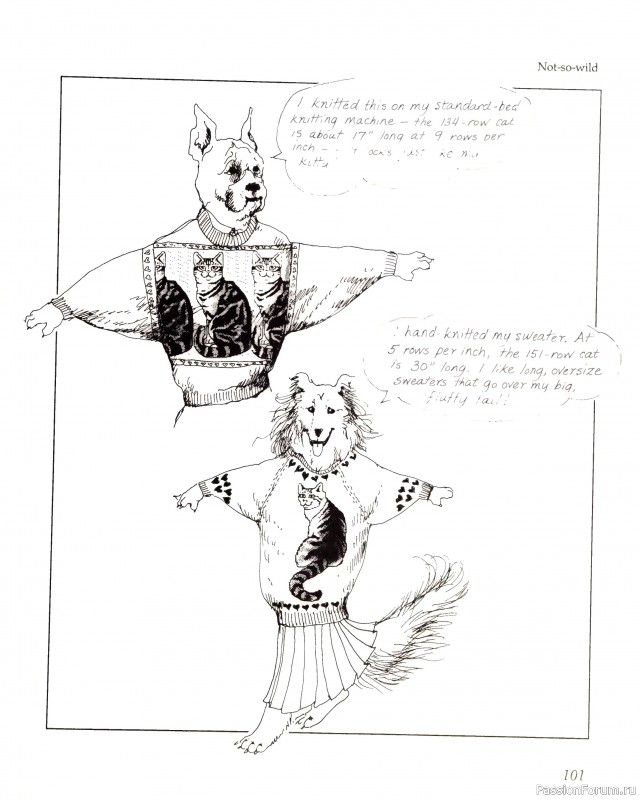 Not-so-wild
I knitted this on my standard-bed
knitting machine — the 134-row cat
is about 17" long at 9 rows per
inch —
kitty
I hand-knitted my sweater. At
5 rows per inch, the 151-row cat
is 30" long. I like long, oversize
sweaters that go over my big,
fluffy tail!!
101
PassionForum.ru